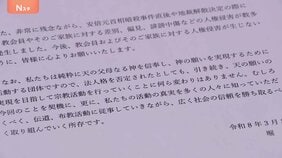 Nスタ
た、非常に残念ながら、安倍元首相暗殺事件直後や地裁解散決定の際に
教会員やそのご家族に対する差別、偏見、誹謗中傷などの人権侵害が数多
発生しました。今後、教会員およびそのご家族に対する人権侵害が生じない
に、皆様に心よりお願いいたします。
なお、私たちは純粋に天の父母なる神を信奉し、神の願いを実現するために
動する団体ですので、法人格を否定されたとしても、引き続き、天の願いの
実現を目指して宗教活動を行っていくことに何ら変わりはありません。むしろ
今回のことを契機に、更に、私たちの活動の真実を多くの人々に知っていただ
くべく、伝道、布教活動に従事していきながら、広く社会の信頼を勝ち取るべ
く取り組んでいく所存です。
令和8年3月